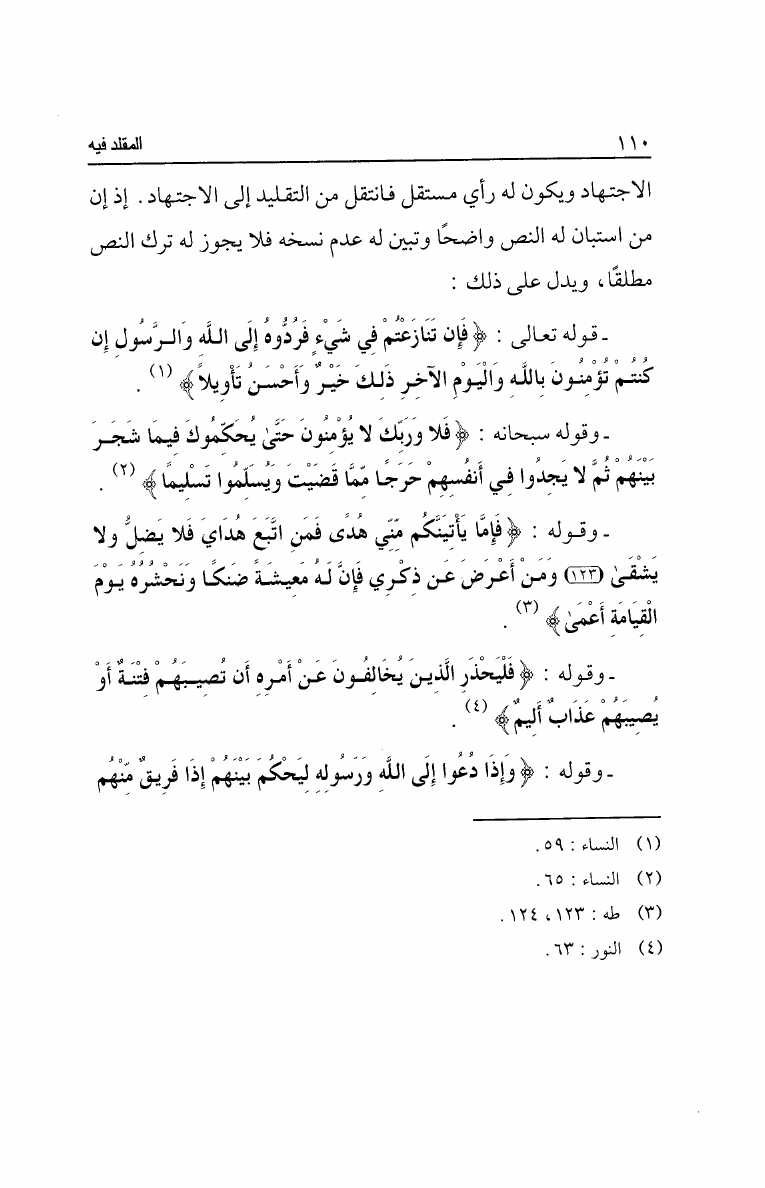 ١١٠ المقلد فيه
الاجتهاد ويكون له رأي مستقل فانتقل من التقليد إلى الاجتهاد. إذ إن
من استبان له النص واضحًا وتبين له عدم نسخه فلا يجوز له ترك النص
مطلقًا، ويدل على ذلك :
ـ قوله تعالى : ﴿ فَإِن تَنَازَعْتُمْ فِي شَيْءٍ فَرُدُّوهُ إِلَى اللَّهِ وَالرَّسُولِ إِن
كُنتُمْ تُؤْمِنُونَ بِاللَّهِ وَالْيَوْمِ الآخِرِ ذَلِكَ خَيْرٌ وَأَحْسَنُ تَأْوِيلاً ﴾ (١) .
ـ وقوله سبحانه : ﴿ فَلا وَرَبِّكَ لا يُؤْمِنُونَ حَتَّىٰ يُحَكِّمُوكَ فِيمَا شَجَرَ
بَيْنَهُمْ ثُمَّ لا يَجِدُوا فِي أَنفُسِهِمْ حَرَجًا مِّمَّا قَضَيْتَ وَيُسَلِّمُوا تَسْلِيمًا ﴾ (٢) .
ـ وقوله : ﴿ فَإِمَّا يَأْتِيَنَّكُم مِّنِّي هُدًى فَمَنِ اتَّبَعَ هُدَايَ فَلا يَضِلُّ وَلا
يَشْقَىٰ (١٢٣) وَمَنْ أَعْرَضَ عَن ذِكْرِي فَإِنَّ لَهُ مَعِيشَةً ضَنكًا وَنَحْشُرُهُ يَوْمَ
الْقِيَامَةِ أَعْمَىٰ ﴾ (٣) .
ـ وقوله : ﴿ فَلْيَحْذَرِ الَّذِينَ يُخَالِفُونَ عَنْ أَمْرِهِ أَن تُصِيبَهُمْ فِتْنَةٌ أَوْ
يُصِيبَهُمْ عَذَابٌ أَلِيمٌ ﴾ (٤) .
ـ وقوله : ﴿ وَإِذَا دُعُوا إِلَى اللَّهِ وَرَسُولِهِ لِيَحْكُمَ بَيْنَهُمْ إِذَا فَرِيقٌ مِّنْهُم
(١) النساء : ٥٩.
(٢) النساء : ٦٥.
(٣) طه : ١٢٣، ١٢٤.
(٤) النور : ٦٣.